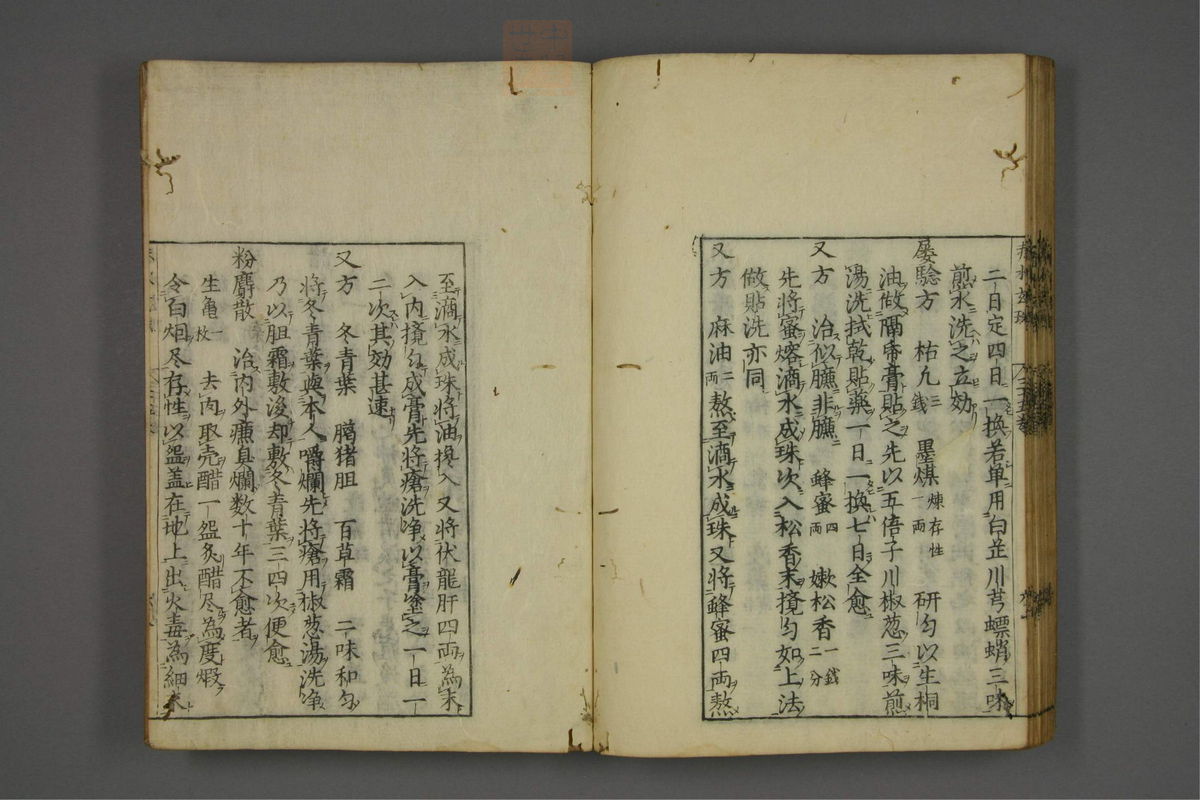 二日定四日一換若单用白芷川芎螵蛸三味
煎水洗之立効
屡驗方　枯九三銭　墨煤煉存性一両　研匀以生桐
油做隔帋膏貼之先以五倍子川椒葱三味煎
湯洗拭乾貼薬一日一換七日全愈
又方　治似臁非臁　蜂蜜四両　嫩松香一銭二分
先將蜜熔滴水成珠次入松香末攪匀如上法
做貼洗亦同
又方　麻油二両熬至滴水成珠又將蜂蜜四両熬
至滴水成珠將油攙入又將伏龍肝四両為末
入内攪匀成膏先將瘡洗净以膏塗之一日一
二次其効甚速
又方　冬青葉　臈猪胆　百草霜　二味和匀
將冬青葉與本人嚼爛先將瘡用椒葱湯洗净
乃以胆霜敷後却敷冬青葉三四次便愈
粉麝散　治内外臁臭爛数十年不愈者
生亀一枚　去肉取壳醋一盌炙醋尽為度煆
令白烟尽存性以盌盖在地上出火毒為細末